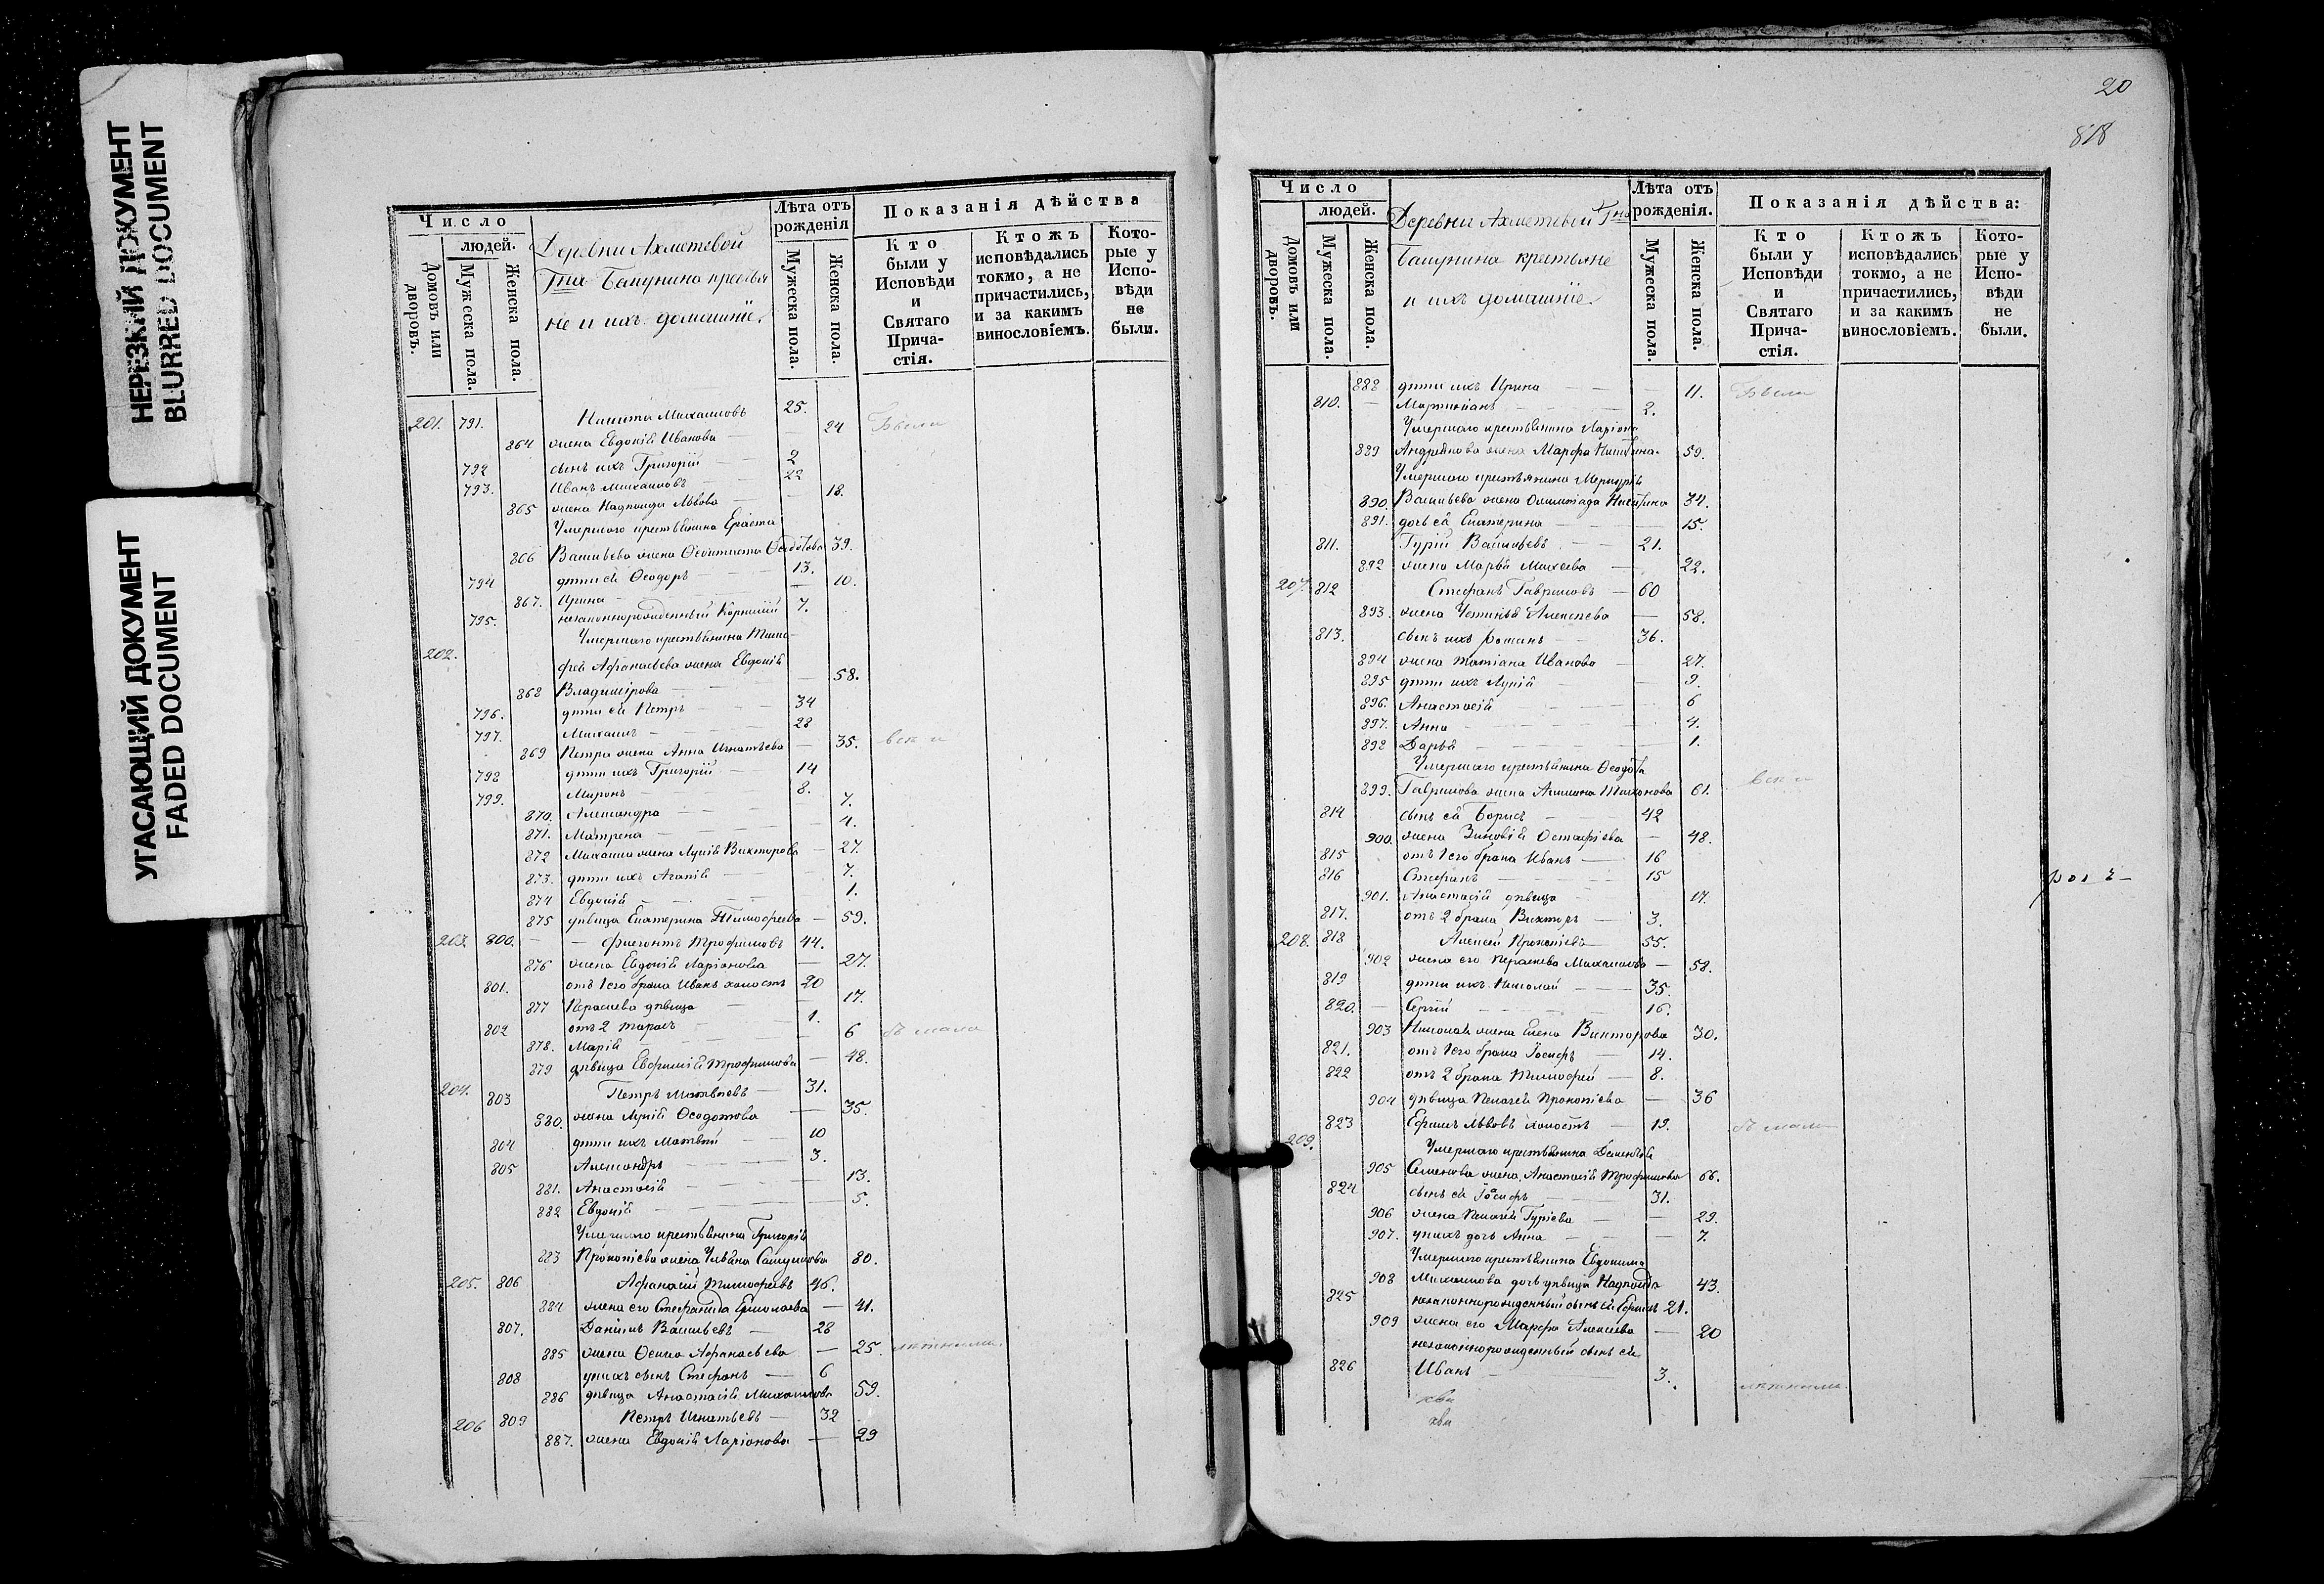 НЕРЕЗКИЙ ДОКУМЕНТ
BLURRED DOCUMENT
УГАСАЮЩИЙ ДОКУМЕНТ
FADED DOCUMENT
Число
людей.
Домовъ или дворовъ.
Мужеска пола.
Женска пола.
Деревни Ахметевой
Гна Бакунина крестья
не и ихъ домашніе.
Лѣта отъ рожденія
Мужеска пола.
Женска пола.
Показанія дѣйства
Кто были у Исповѣди и Святаго Прича-стія.
Ктожъ исповѣдались токмо, а не причастились, и за какимъ винословіемъ.
Кото-рые у Испо-вѣди не были.
201. 791. Никита Михаиловъ 25.
864 жена Евдокія Иванова — 24 Были
792 сынъ ихъ Григорій — 2
793. Иванъ Михаиловъ — 22
865 жена Надежда Львова — 18.
Умершаго крестьянина Ераста
866 Васильева жена Феоктиста Феодотова 39.
794 дѣти ея Феодоръ — 13.
867. Ирина — 10.
795. незаконнорожденный Корнилій 7.
202. Умершаго крестьянина Тимо
фея Афанасьева жена Евдокія
868 Владимірова — 58.
796. дѣти ея Петръ — 34
797. Михаилъ — 28
869 Петра жена Анна Игнатьева — 35.
798 дѣти ихъ Григорій — 14
799. Миронъ — 8.
870. Александра — 7.
871. Матрена — 4.
872 Михаила жена Лукія Викторова — 27.
873. дѣти ихъ Агапія — 7.
874 Евдокія — 1.
875 дѣвица Екатерина Тимофеева — 59.
203 800. — Флегонтъ Трофимовъ 44.
876 жена Евдокія Ларіонова — 27.
801. отъ 1го брака Иванъ холостъ 20
877 Параскева дѣвица — 17.
802 отъ 2 Тарасъ — 1.
878. Марія — 6
879 дѣвица Евфимія Трофимова — 48.
204. 803 Петръ Матвѣевъ — 31.
880. жена Лукія Феодотова — 35.
804 дѣти ихъ Матвѣй — 10
805 Александръ — 3.
881. Анастасія — 13.
882 Евдокія — 5.
Умершаго крестьянина Григорія
883 Прокопіева жена Ульяна Самуилова 80.
205. 806 Афанасій Тимофеевъ 46.
884 жена его Стефанида Ермолаева — 41.
807. Даніилъ Васильевъ — 28
885 жена Фекла Афанасьева — 25
808 у нихъ сынъ Стефанъ — 6
886 дѣвица Анастасія Михаилова 59.
206 809 Петръ Игнатьевъ — 32
887. жена Евдокія Ларіонова — 29
20
818
Число
людей.
Домовъ или дворовъ.
Мужеска пола.
Женска пола.
Деревни Ахметевой Гна
Бакунина крестьяне
и ихъ домашніе.
Лѣта отъ рожденія.
Мужеска пола.
Женска пола.
Показанія дѣйства:
Кто были у Исповѣди и Святаго Прича-стія.
Ктожъ исповѣдались токмо, а не причастились, и за какимъ винословіемъ.
Кото-рые у Испо-вѣди не были.
888 дѣти ихъ Ирина — — 11. Были
810. — Мартиніанъ — 2.
Умершаго крестьянина Ларіона
889 Андреянова жена Марфа Никитина 59.
Умершаго крестьянина Меркурія
890. Васильева жена Олимпіада Никитина 34.
891. дочь ея Екатерина — 15.
811. Гурій Васильевъ — 21.
892 жена Марья Михеева — 22.
207. 812 Стефанъ Гавриловъ — 60
893. жена Устинья Алексѣева — 58.
813. сынъ ихъ Романъ — 36.
894 жена Татіана Иванова — 27.
895 дѣти ихъ Лукія — 9.
896. Анастасія — 6
897. Анна — 4.
898 Дарья — 1.
Умершаго крестьянина Феодота
899. Гаврилова жена Акилина Тихонова 61.
814 сынъ ея Борисъ — 42
900. жена Зиновія Остафіева — 48.
815 отъ 1го брака Иванъ — 16
816 Стефанъ — 15
901. Анастасія дѣвица
817. отъ 2 брака Викторъ — 3.
208. 818 Алексѣй Прокопіевъ — 55.
902 жена его Параскева Михаилова — 58.
819 дѣти ихъ Николай — 35.
820. — Сергій — 16.
903 Николая жена Елена Викторова 30.
821. отъ 1го брака Іосифъ — 14.
822 отъ 2 брака Тимофей — 8.
904 дѣвица Пелагея Прокопіева — 36
823 Ефимъ Львовъ холостъ — 19.
209. Умершаго крестьянина Дементія
905 Семенова жена Анастасія Трофимова 66.
824 сынъ ея Іосифъ — 31.
906 жена Пелагея Гуріева — 29.
907. у нихъ дочь Анна — 7.
Умершаго крестьянина Евдокима
908 Михаилова дочь дѣвица Надежда 43.
825 незаконнорожденный сынъ ея Ефимъ 21.
909 жена его Марфа Алексѣева — 20
незаконнорожденный сынъ ея
826 Иванъ — 3.